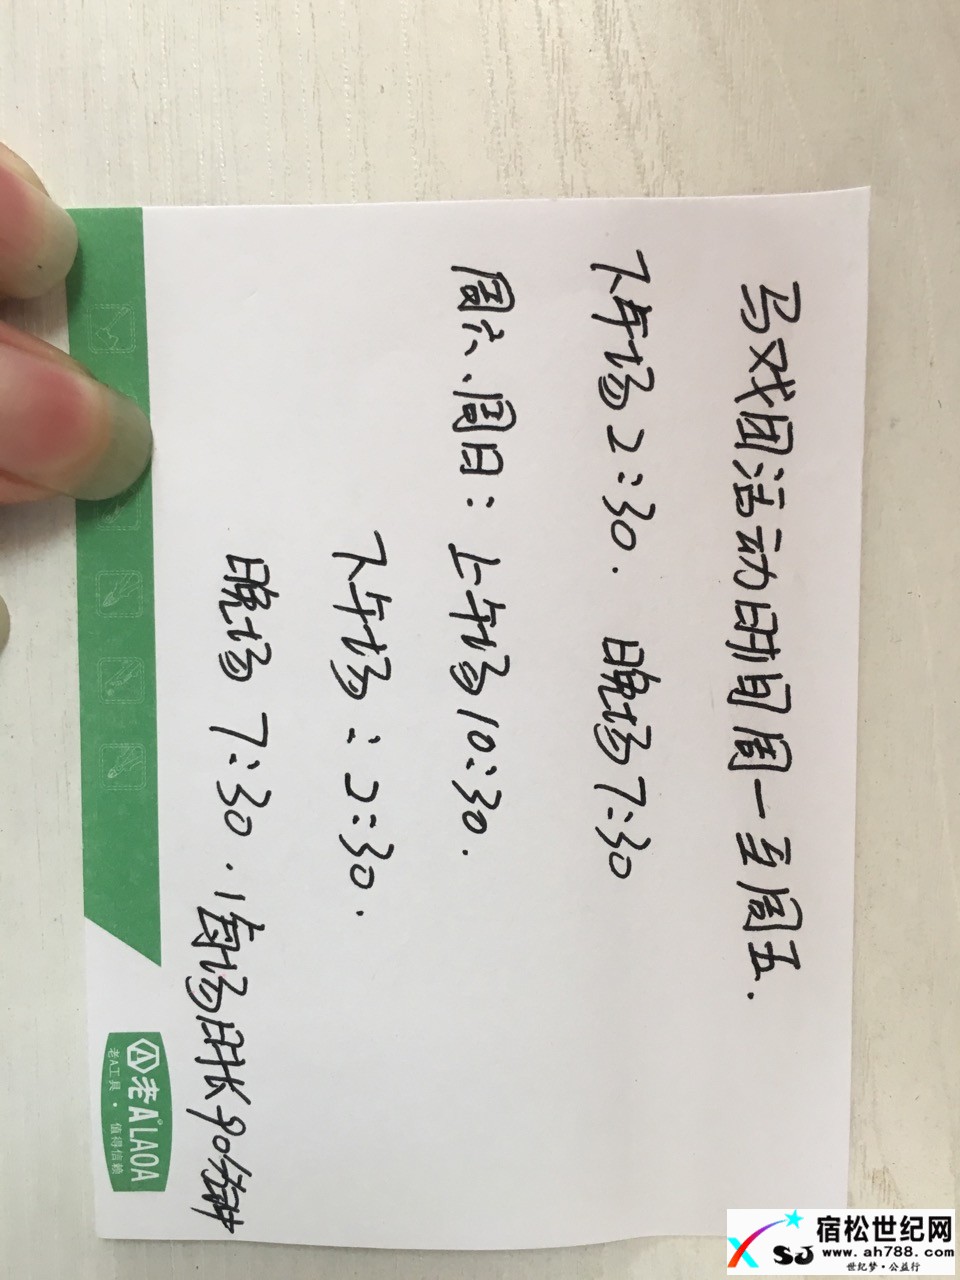 马戏团活动时间周一至周五.
下午场2:30. 晚场7:30
周六、周日: 上午场10:30.
下午场:2:30.
晚场7:30.1每场时长90分钟
老A LAOA
老A工具·值得信赖
宿松世纪网
XSJ
www.ah788.com
世纪梦·公益行